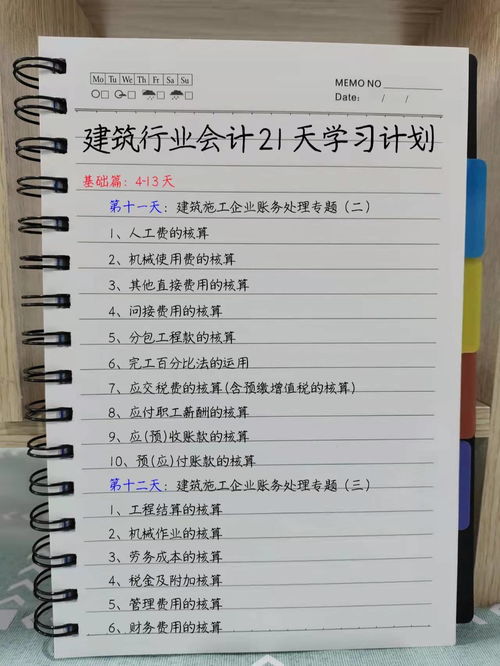 Mo Tu We Th Fr Sa Su
MEMO NO
Date: / /
建筑行业会计21天学习计划
基础篇：4-13天
第十一天：建筑施工企业账务处理专题（二）
1、人工费的核算
2、机械使用费的核算
3、其他直接费用的核算
4、间接费用的核算
5、分包工程款的核算
6、完工百分比法的运用
7、应交税费的核算(含预缴增值税的核算)
8、应付职工薪酬的核算
9、应(预)收账款的核算
10、预(应)付账款的核算
第十二天：建筑施工企业账务处理专题（三）
1、工程结算的核算
2、机械作业的核算
3、劳务成本的核算
4、税金及附加核算
5、管理费用的核算
6、财务费用的核算